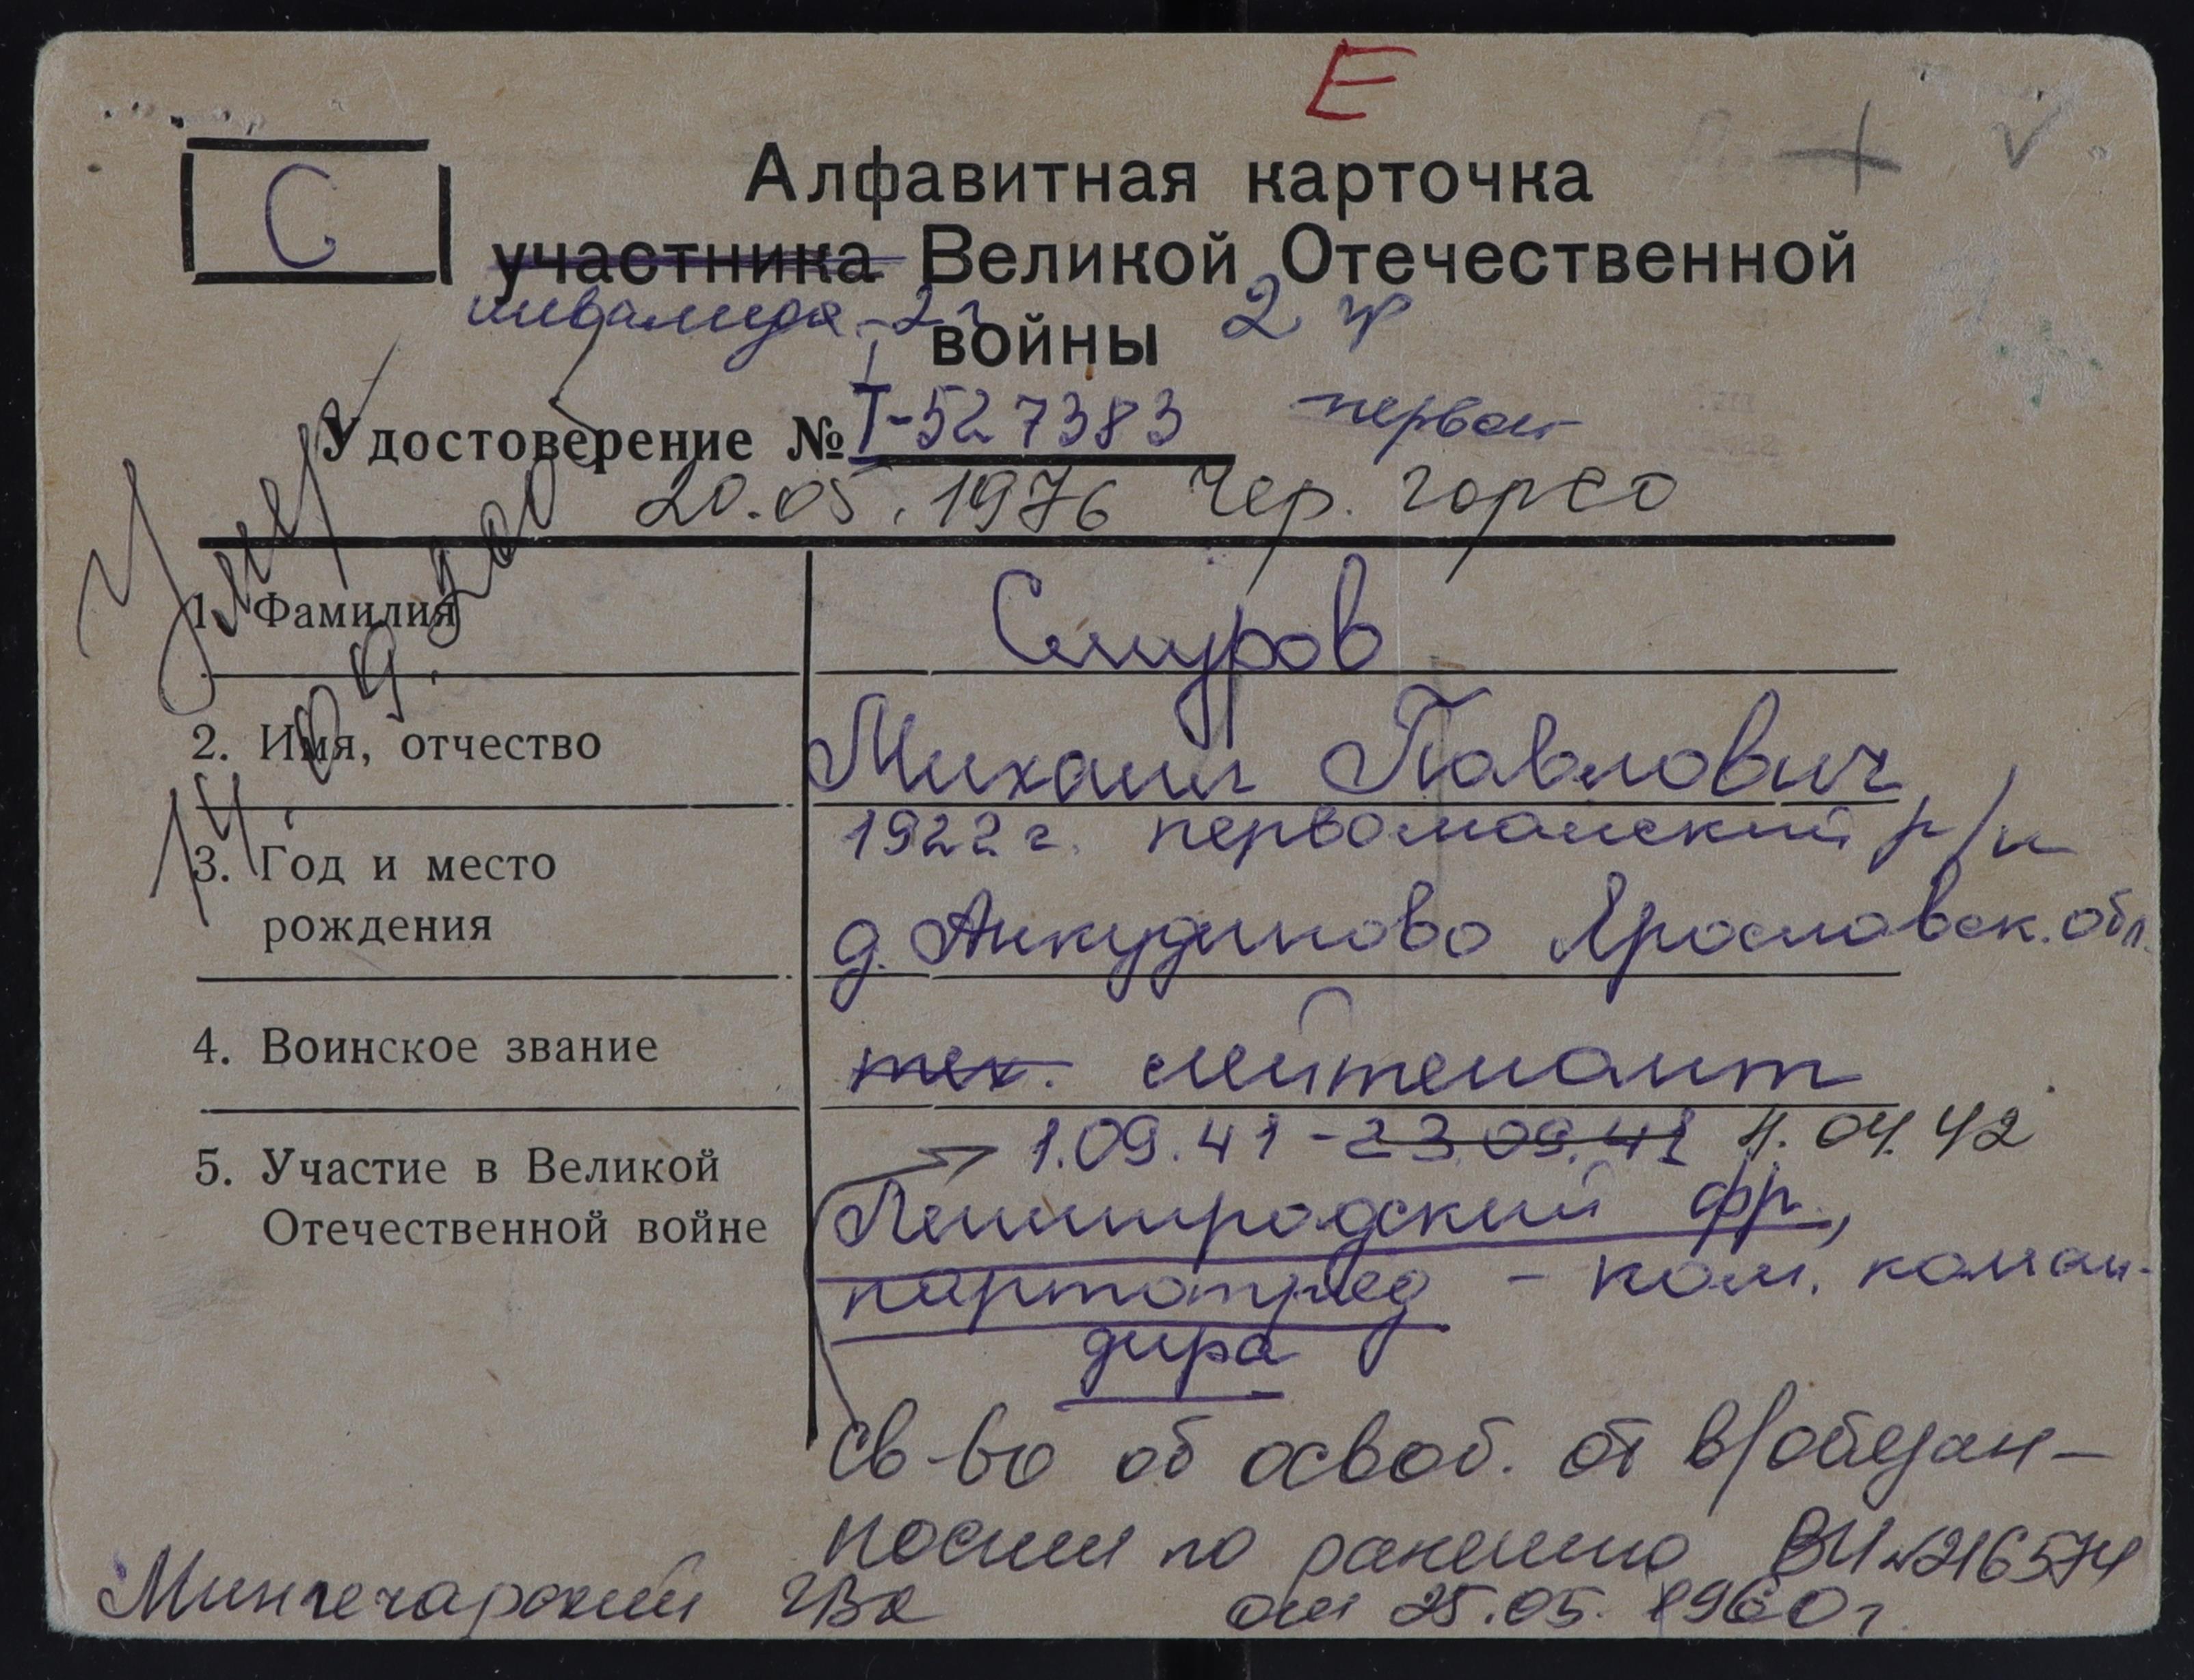 Е
С
Алфавитная карточка
участника Великой Отечественной
инвалида - 2 г
2 гр
войны
Удостоверение № Т-527383
20.05.1976 Чер. горсо
Умер
14.09.2001
1. Фамилия
Смуров
2. Имя, отчество
Михаил Павлович
3. Год и место
рождения
1922 г. первомайский р/н
д. Анкудиново Ярославск. обл.
4. Воинское звание
тех. лейтенант
5. Участие в Великой
Отечественной войне
1.09.41 - 23.09.41 4.04.42
Ленинградский фр.,
партотряд - пом. коман-
дира
св-во об освоб. от в/обязан-
ности по ранению ВИ №216574
от 25.05.1960 г.
Мингечарский ГВК